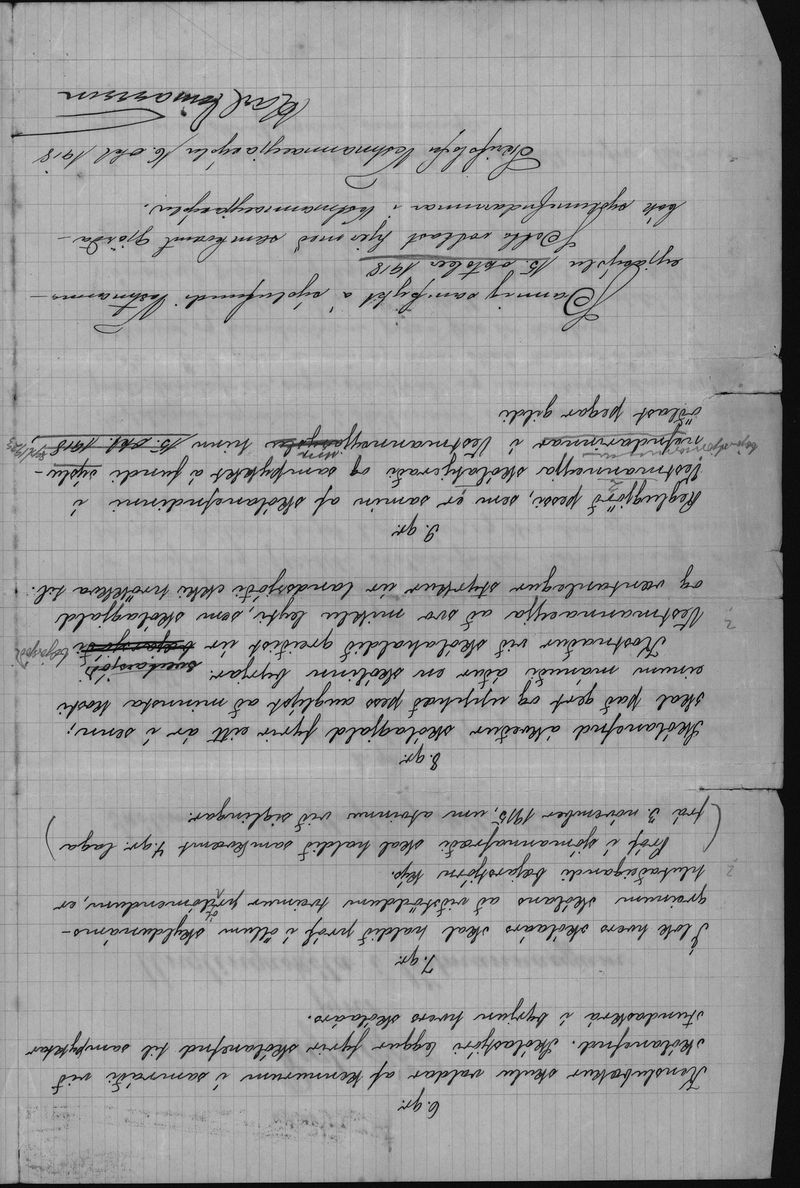 6. gr.
Kenslubækur skulu valdar af kennurum í samráði við
skólanefnd. Skólastjóri leggur fyrir skólanefnd til samþyktar
stundaskrá í byrjun hvers skólaárs.
7. gr.
Í lok hvers skólaárs skal haldið próf í öllum skyldunáms-
greinum skólans að viðstöddum tveimur prófdómendum, er
hlutaðeigandi bæjarstjórn kýs.
(Próf í sjómannafræði skal haldið samkvæmt 4. gr. laga
frá 3. nóvember 1915, um atvinnu við siglingar.)
8. gr.
Skólanefnd ákveður skólagjald fyrir eitt ár í senn;
skal það gert og upphæð þess auglýst að minnsta kosti
einum mánuði áður en skólinn byrjar.
Kostnaður við skólahaldið greiðist úr bæjarsjóði sveitarsjóði bæjarsjóð
Vestmannaeyja að svo miklu leyti, sem skólagjald
og væntanlegur styrkur úr landssjóði ekki hrökkva til.
9. gr.
Reglugjörð þessi, sem er samin af skólanefndinni í
Vestmannaeyja skólahjeraði og samþykt á fundi sýslu-
nefndarinnar í Vestmannaeyjasýslu hinn 15. okt. 1918,
öðlast þegar gildi.
Þannig samþykt á sýslufundi Vestmanna-
eyjasýslu 15. október 1918
Þetta vottast hjer með samkvæmt gjörða-
bók sýslunefndarinnar í Vestmannaeyjasýslu.
Skrifstofu Vestmannaeyjasýslu, 16. okt. 1918
Karl Einarsson